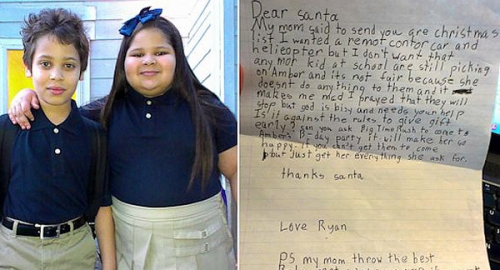 Dear santa
My mom said to send you are christmas
list I wanted a remot contor car and
helieopter but I don't want that
any mor kid at school are still picking
on Amber and its not fair because she
doesnt do anything to them and it
makes me med I prayed that they will
stop but god is bisy and needs your help
Is it against the rules to give gift
early? Can you ask Big Time Rush to come to
Ambers B-day party it will make her so
happy. If you can't get them to come
but Just get her everything she ask for.
thanks santa
Love Ryan
PS my mom throw the best